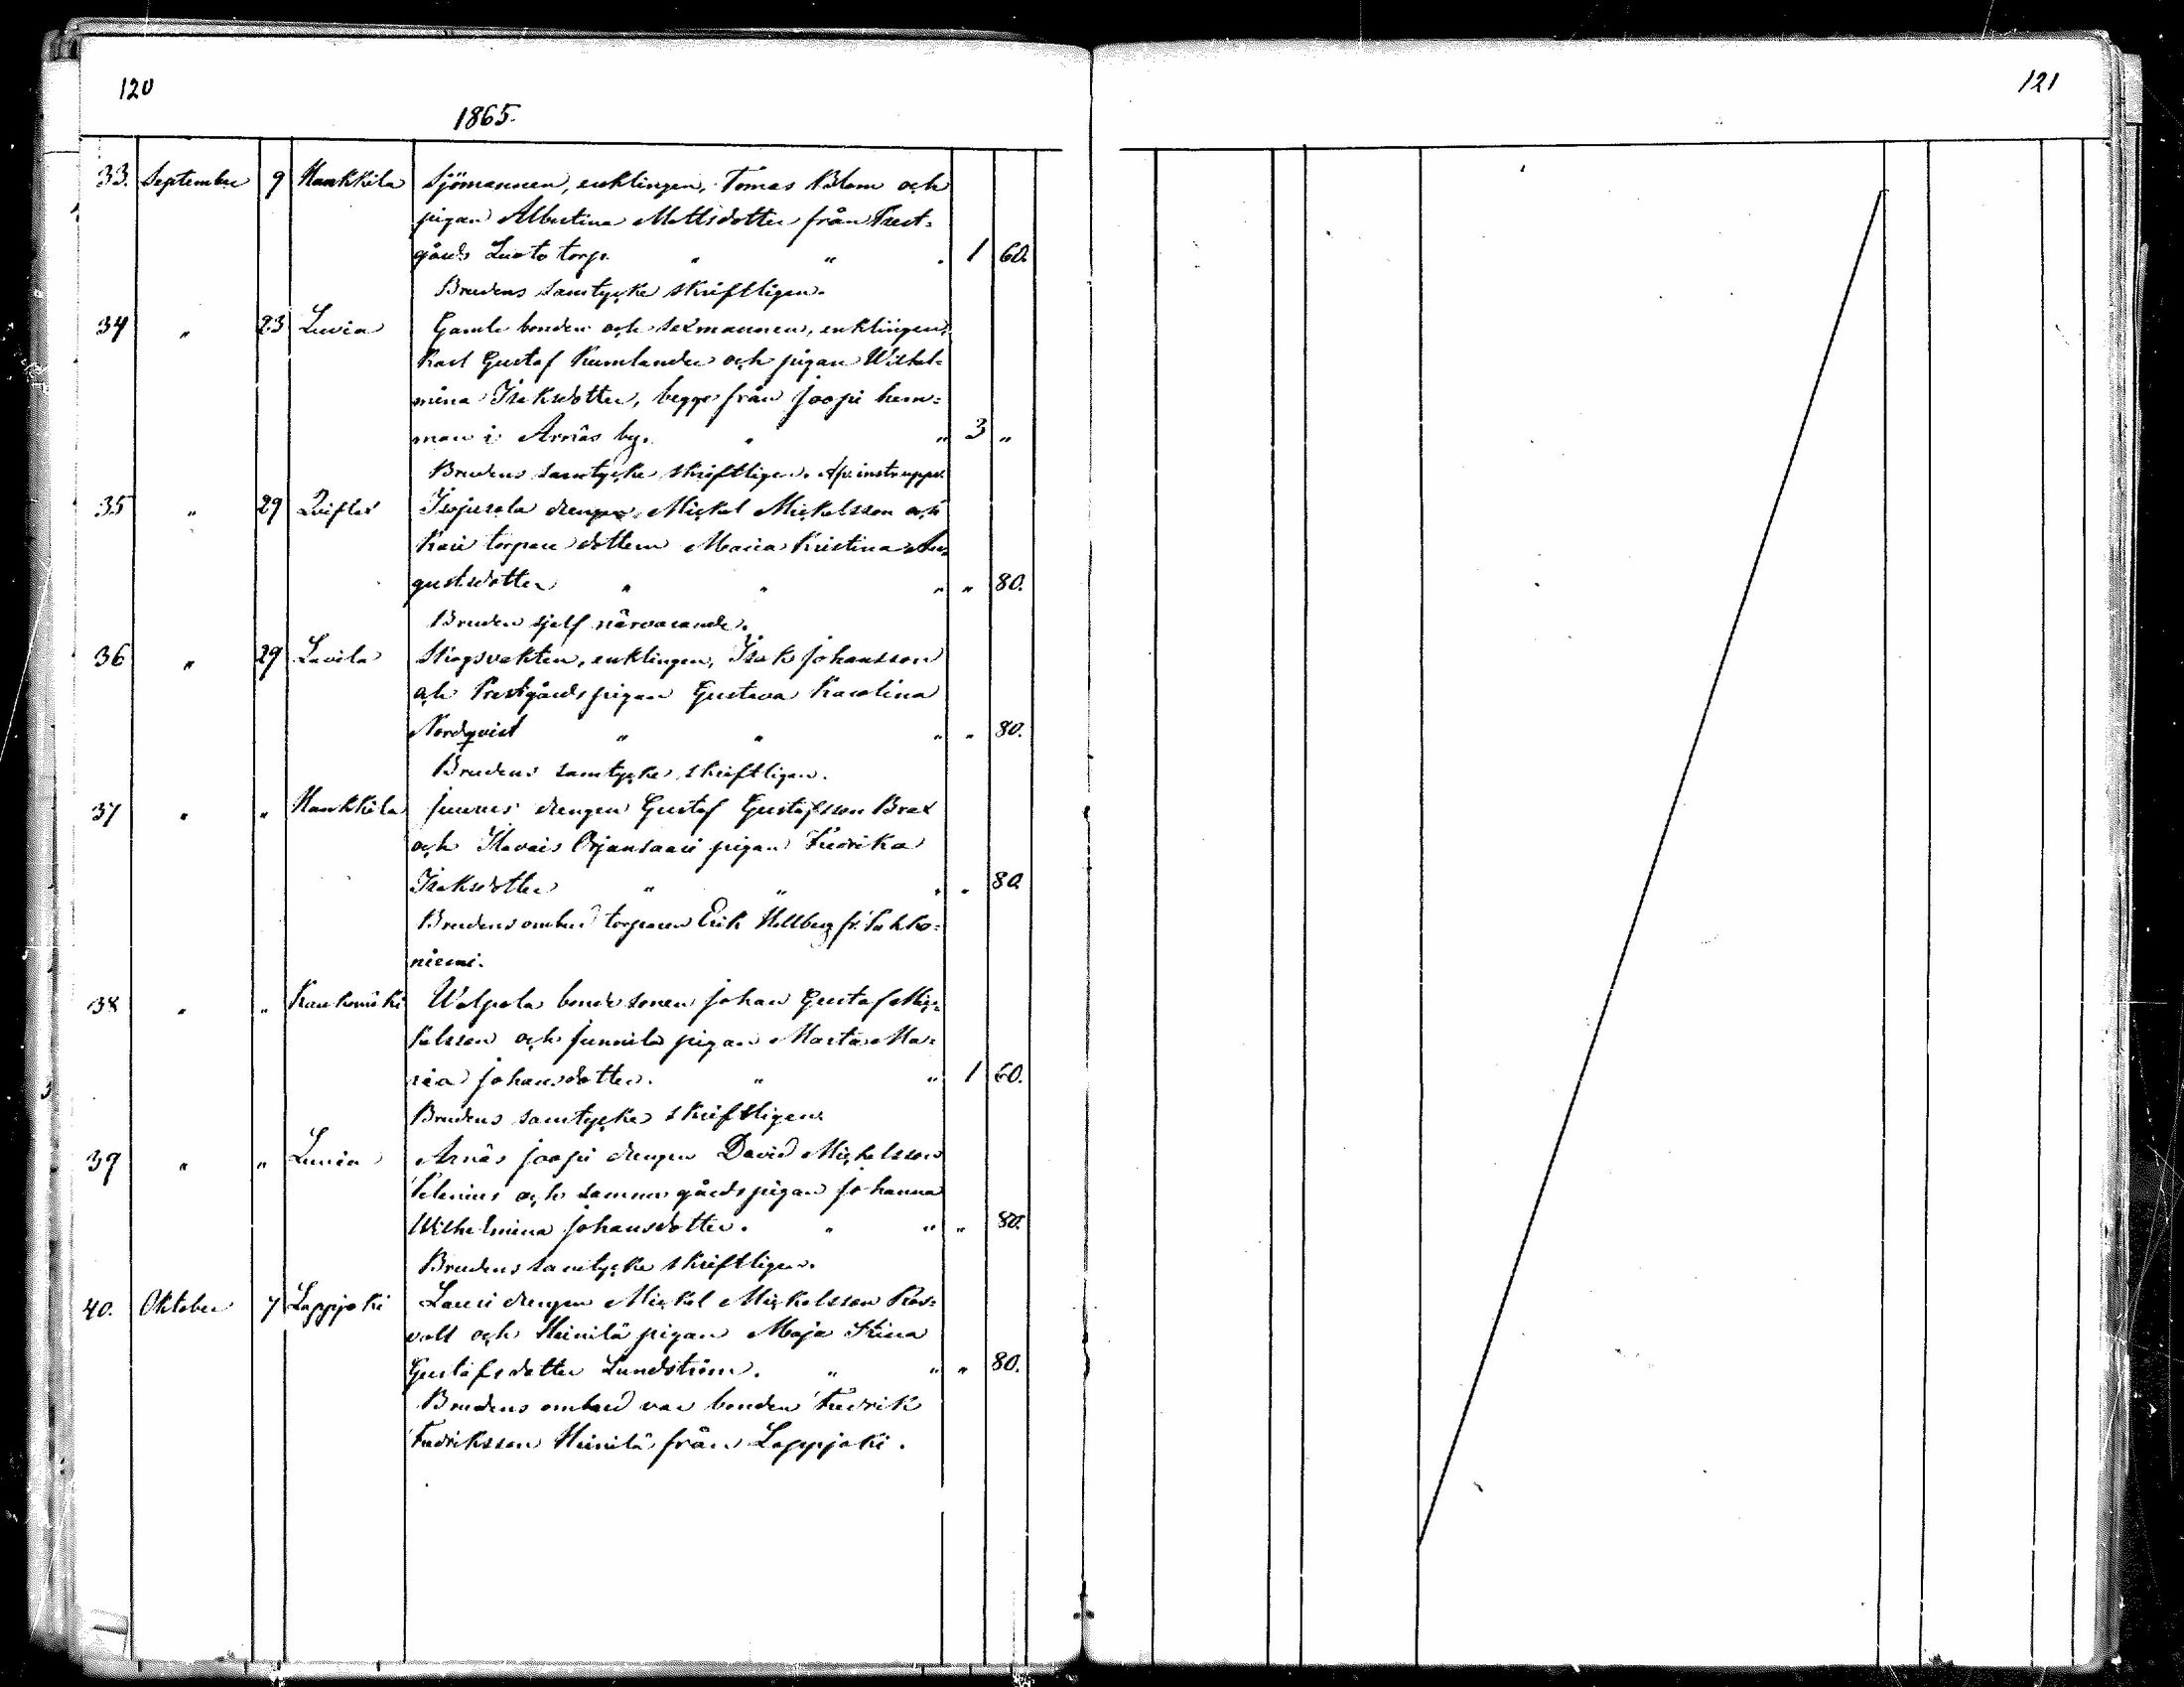 120
121
1865.
33. September 9 Hankkila Sjömannen, enklingen, Tomas Blom och
pigan Albertina Mattsdotter från Prest-
gårds Luoto torp. " " . 1 60.
Brudens samtycke skriftligen.
34 " 23 Luvia Gamle bonden och sexmannen, enklingen,
Karl Gustaf Kumlander och pigan Wilhel-
mina Isaksdotter, begge från Joopi hem-
man i Arnäs by. " " 3 "
Brudens samtycke skriftligen.
35 " 29 drengen Mickel Mickelsson och
Kari torpare dottern Maria Kristina Au-
gustsdotter " " " " 80.
Bruden sjelf närvarande.
36 " 29 Lavila Skogsvakten, enklingen, Isak Johansson
och Prestgårds pigan Gustava Karolina
Nordqvist " " " " 80.
Brudens samtycke skriftligen.
37 " " Hankkila Juurus drengen Gustaf Gustafsson Brax
och Orjansaari pigan Fredrika
Isaksdotter " " " " 80.
Brudens ombud torparen Erik Hellberg fr.
niemi.
38 " " Kaukomäki Walpola bonde sonen Johan Gustaf Mic-
kelsson och Junnila pigan Marta Ma-
ria Johansdotter. " " 1 60.
Brudens samtycke skriftligen.
39 " " Luvia Arnäs Joopi drengen David Mickelsson
och samma gårds pigan Johanna
Wilhelmina Johansdotter. " " " 80.
Brudens samtycke skriftligen.
40. Oktober 7 Lappjoki Lauri drengen Mickel Mickelsson Ros-
vall och Heinilä pigan Maja Stina
Gustafsdotter Lundström. " " " 80.
Brudens ombud var bonden Fredrik
Fredriksson Heinilä från Lappjoki.